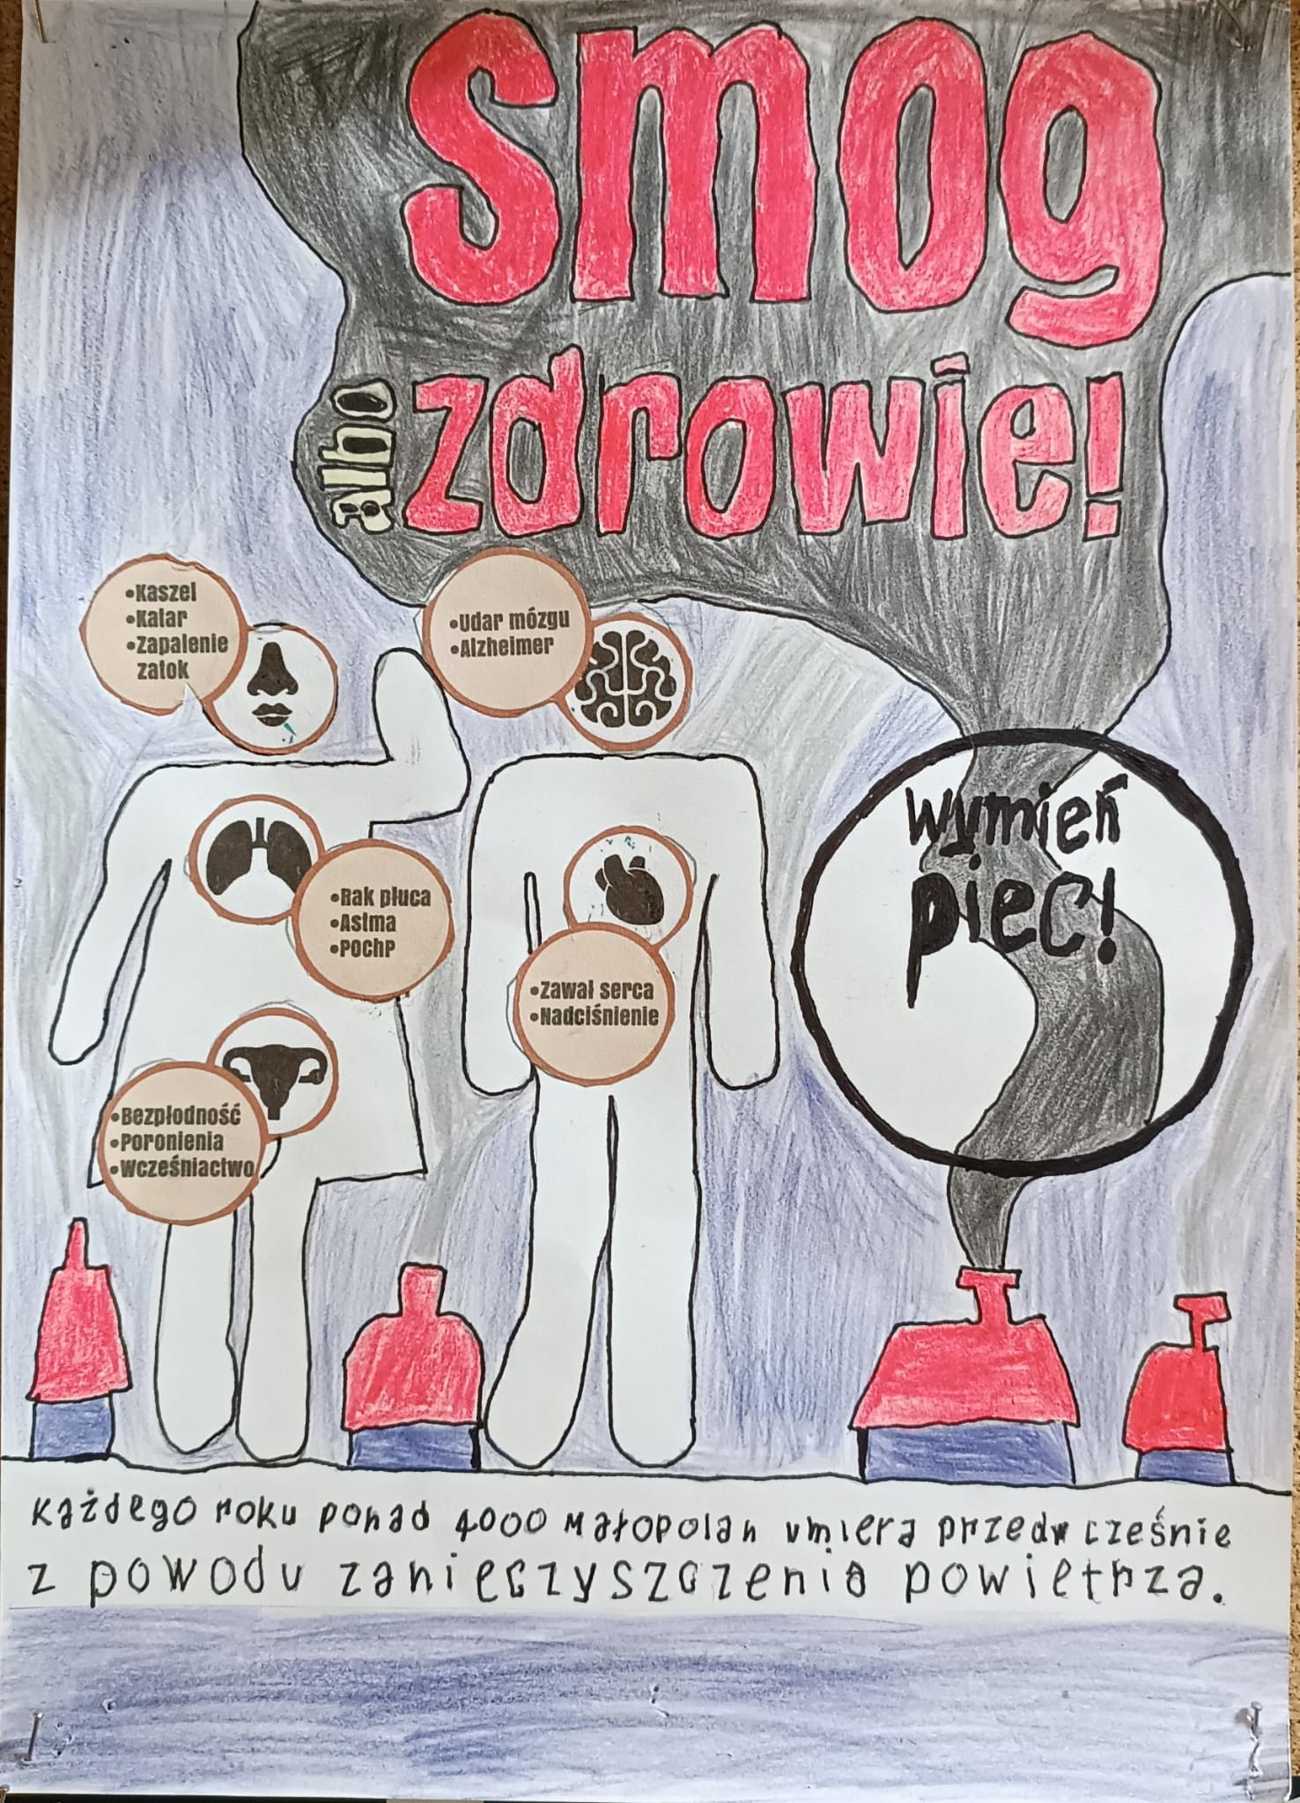 smog
albo
zdrowie!
•Kaszel
•Katar
•Zapalenie
zatok
•Udar mózgu
•Alzheimer
wymień
piec!
•Rak płuca
•Astma
•POChP
•Zawał serca
•Nadciśnienie
•Bezpłodność
•Poronienia
•Wcześniactwo
Każdego roku ponad 4000 Małopolan umiera przedwcześnie
z powodu zanieczyszczenia powietrza.